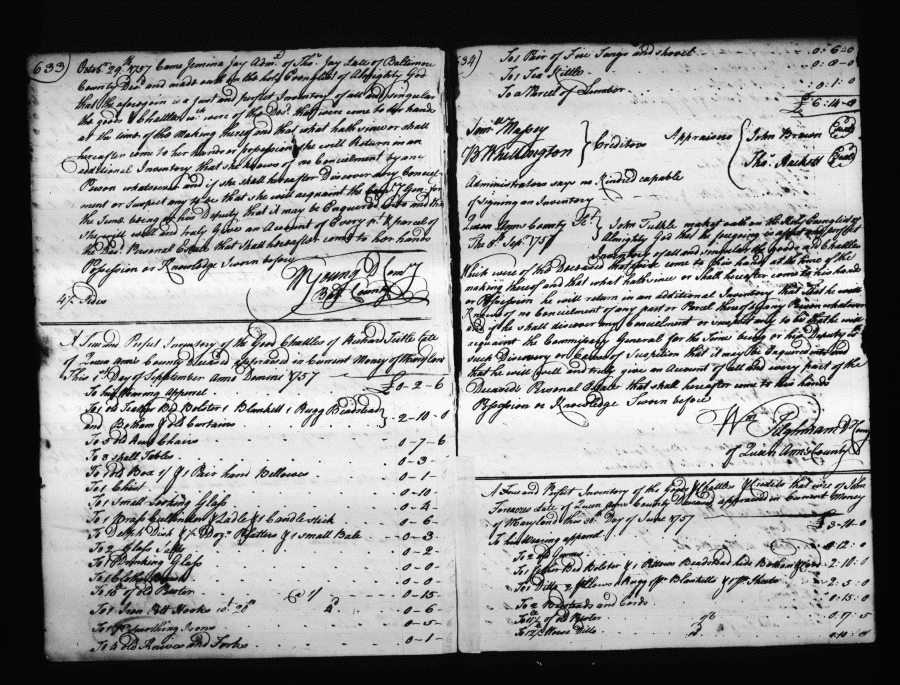 633
Octobr 29th 1757 Came Jemima Jay Admx of Thos Jay Late of Baltimore
County Decd and made oath on the holy Evangels of Almighty God
that the aforegoin is a just and perfect Inventory of all and singular
the goods & Chattles wch were of the Decd that were come to her hands
at the time of the Making thereof and that what hath since or shall
hereafter come to her hands or possession she will Return in an
additional Inventory that she knows of no Concealment by any
Person whatsoever and if she shall hereafter Discover any Conceal
ment or Suspect any to be that she will acquaint the Comy Gen for
the time being or his Deputy that it may be Enquired into and that
She will well and truly Give an Account of Every pt & parcel of
the Decd Personal Estate that Shall hereafter come to her hands
Possession or Knowledge Sworn before
W Young D Comy
Balt County
47 Sides
A True and Perfect Inventory of the Good Chattles of Richard Tuttle late
of Queen Anns County Deceasd appraised in Current Money of Maryland
This 1st Day of September Anno Domini 1757
To his Wearing Apparel £ 0 - 2 - 6
To 1 old Feather Bed Bolster 1 Blankitt 1 Rugg Beadstead
and Bottom & old Curtains - 2 - 10 - 0
To 5 old Chairs 0 - 7 - 6
To 3 small Tables 0 - 3 -
To 1 old Box & 1 Pair hand Bellows 0 - 1 -
To 1 Chest 0 - 10 -
To 1 Small Looking Glass 0 - 4
To 1 Brass Ladle & 1 Candlestick 0 - 6 -
To Delph Dish & 1/2 Doz Platters & 1 Small Bole 0 - 3
To 2 Glass Salts 0 - 2
To 1 Drinking Glass 0 - 0 -
To 1 Cloths 0 - 0 -
To 15 lb of old Pewter 0 - 15 -
To 1 Iron Pott Hooks 4d 0 - 6 -
To 1 Smoothing Irons 0 - 5 -
To 4 old Knives and Forks 0 - 1 -
634
To 1 Pair of Fire Tongs and shovel 0 - 6 - 0
To 1 Tea Kittle 0 - 8 - 0
To a Parcell of Lumber 0 - 1 - 0
£ 6 - 14 - 0
Saml Massey
B Whittington
Creditors
Appraisers
John Brown Seald
Thos Hackett Seald
Administrators says no kindred capable
of signing an Inventory
Queen Anns County Sct
The 8th Sept 1757
John Tuttle maketh oath on the Holy Evangels of
Almighty God that the foregoing is a just and perfect
Inventory of all and singular the Goods and Chattles
Which were of the Deceased that were come to his hands at the time of the
making thereof and that what hath since or shall hereafter come to his hands
or Possession he will return in an additional Inventory that he
Knows of no Concealment of any part or Parcel thereof by any Person whatsoever
and if he shall discover any Concealment or suspect any to be that he will
acquaint the Commissary General for the Time being or his Deputy with
such Discovery or Cause of Suspition that it may be Enquired into and
that he will well and truly give an Account of all and every part of the
Deceaseds Personal Estate that shall hereafter come to his hands
Possession or Knowledge Sworn before
Wm Tilghman D Comy
of Queen Anns County
A True and Perfect Inventory of the Goods Chattles & Credits that were of John
late of Queen Anns County Deceased appraised in Current Money
of Maryland this Day of June 1757
To his Wearing apparel £ 3 - 14 - 0
To 2 old Gowns 0 - 12 - 0
To 1 Feather Bed Bolster & 1 Pillow Beadstead hide Bottom & Cord 2 - 10 - 0
To 1 Ditto 2 pillows 1 Rugg 1 pr Blanketts & 1 pr Sheets 2 - 5 - 0
To 2 Bedsteads and Cords 0 - 15 - 0
To of old Pewter 0 - 17 - 5
To Ditto 0 - 10 - 0